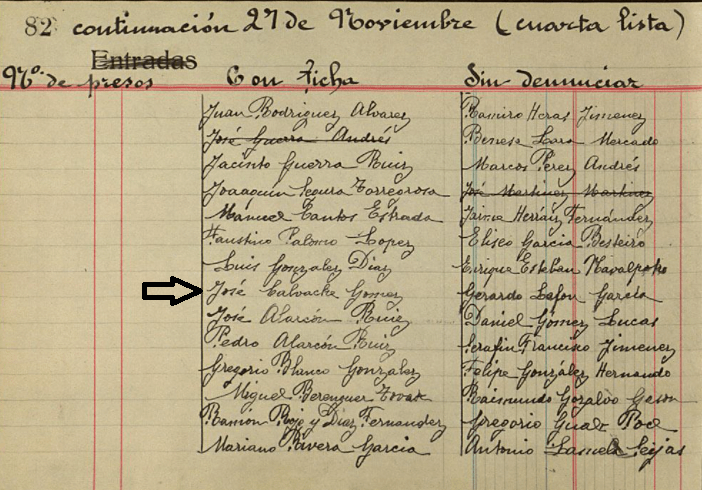 82 continuación 27 de Noviembre (cuarta lista)
Entradas
Nº de presos Con Ficha Sin denunciar
Juan Rodriguez Alvarez Ramiro Heras Jimenez
José Guerra Andrés Lara Mercado
Jacinto Guerra Ruiz Marcos Perez Andrés
Joaaquín Segura Torregrosa José Martinez Martinez
Manuel Cantos Estrada Jaime Herraiz Fernández
Faustino Palomo Lopez Eliseo Garcia Besteiro
Luis Gonzalez Diaz Enrique Esteban
José Calvache Gomez Gerardo Lafon García
José Alarcón Ruiz Daniel Gómez Lucas
Pedro Alarcón Ruiz Serafin Francisco Jimenez
Gregorio Blanco González Felipe González Hernando
Miguel Berenguer Raimundo Gozalvo
Ramon Rojo y Diaz Fernandez Gregorio
Mariano Rivera Garcia Antonio